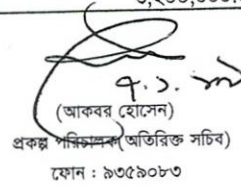 (আকবর হোসেন)
প্রকল্প পরিচালক(অতিরিক্ত সচিব)
ফোন : ৯৩৫৯০৮৩